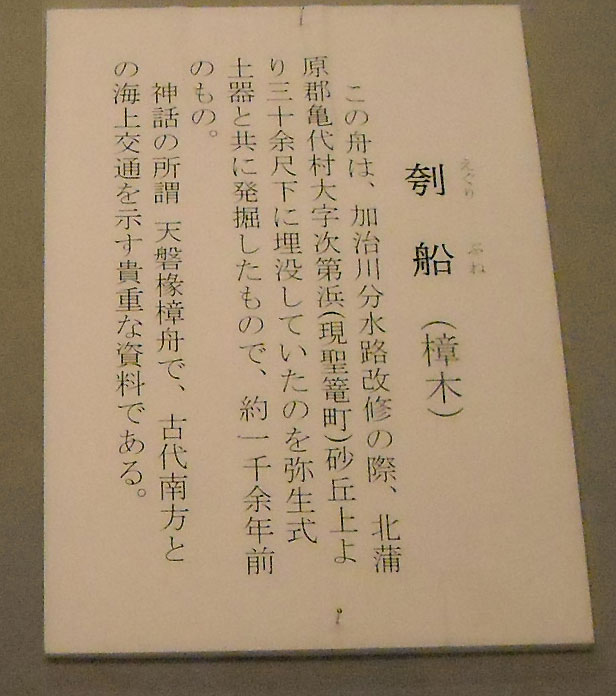 えぐり ぶね
刳船（樟木）
この舟は、加治川分水路改修の際、北蒲
原郡亀代村大字次第浜(現聖篭町)砂丘上よ
り三十余尺下に埋没していたのを弥生式
土器と共に発掘したもので、約一千余年前
のもの。
神話の所謂 天磐椽樟舟で、古代南方と
の海上交通を示す貴重な資料である。